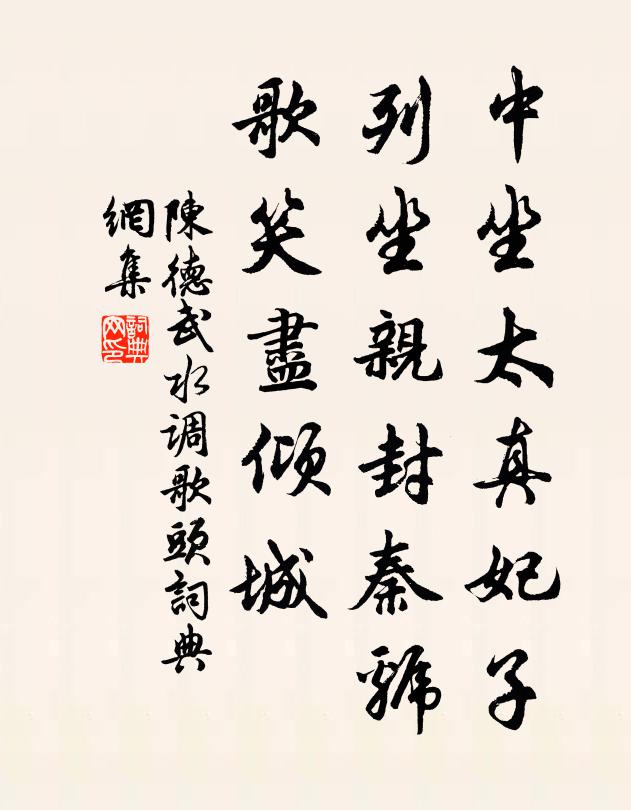 中坐太真妃子
列坐親封秦虢
歌笑盡傾城
陳德武水调歌頭詞典
網集
詞典
网印